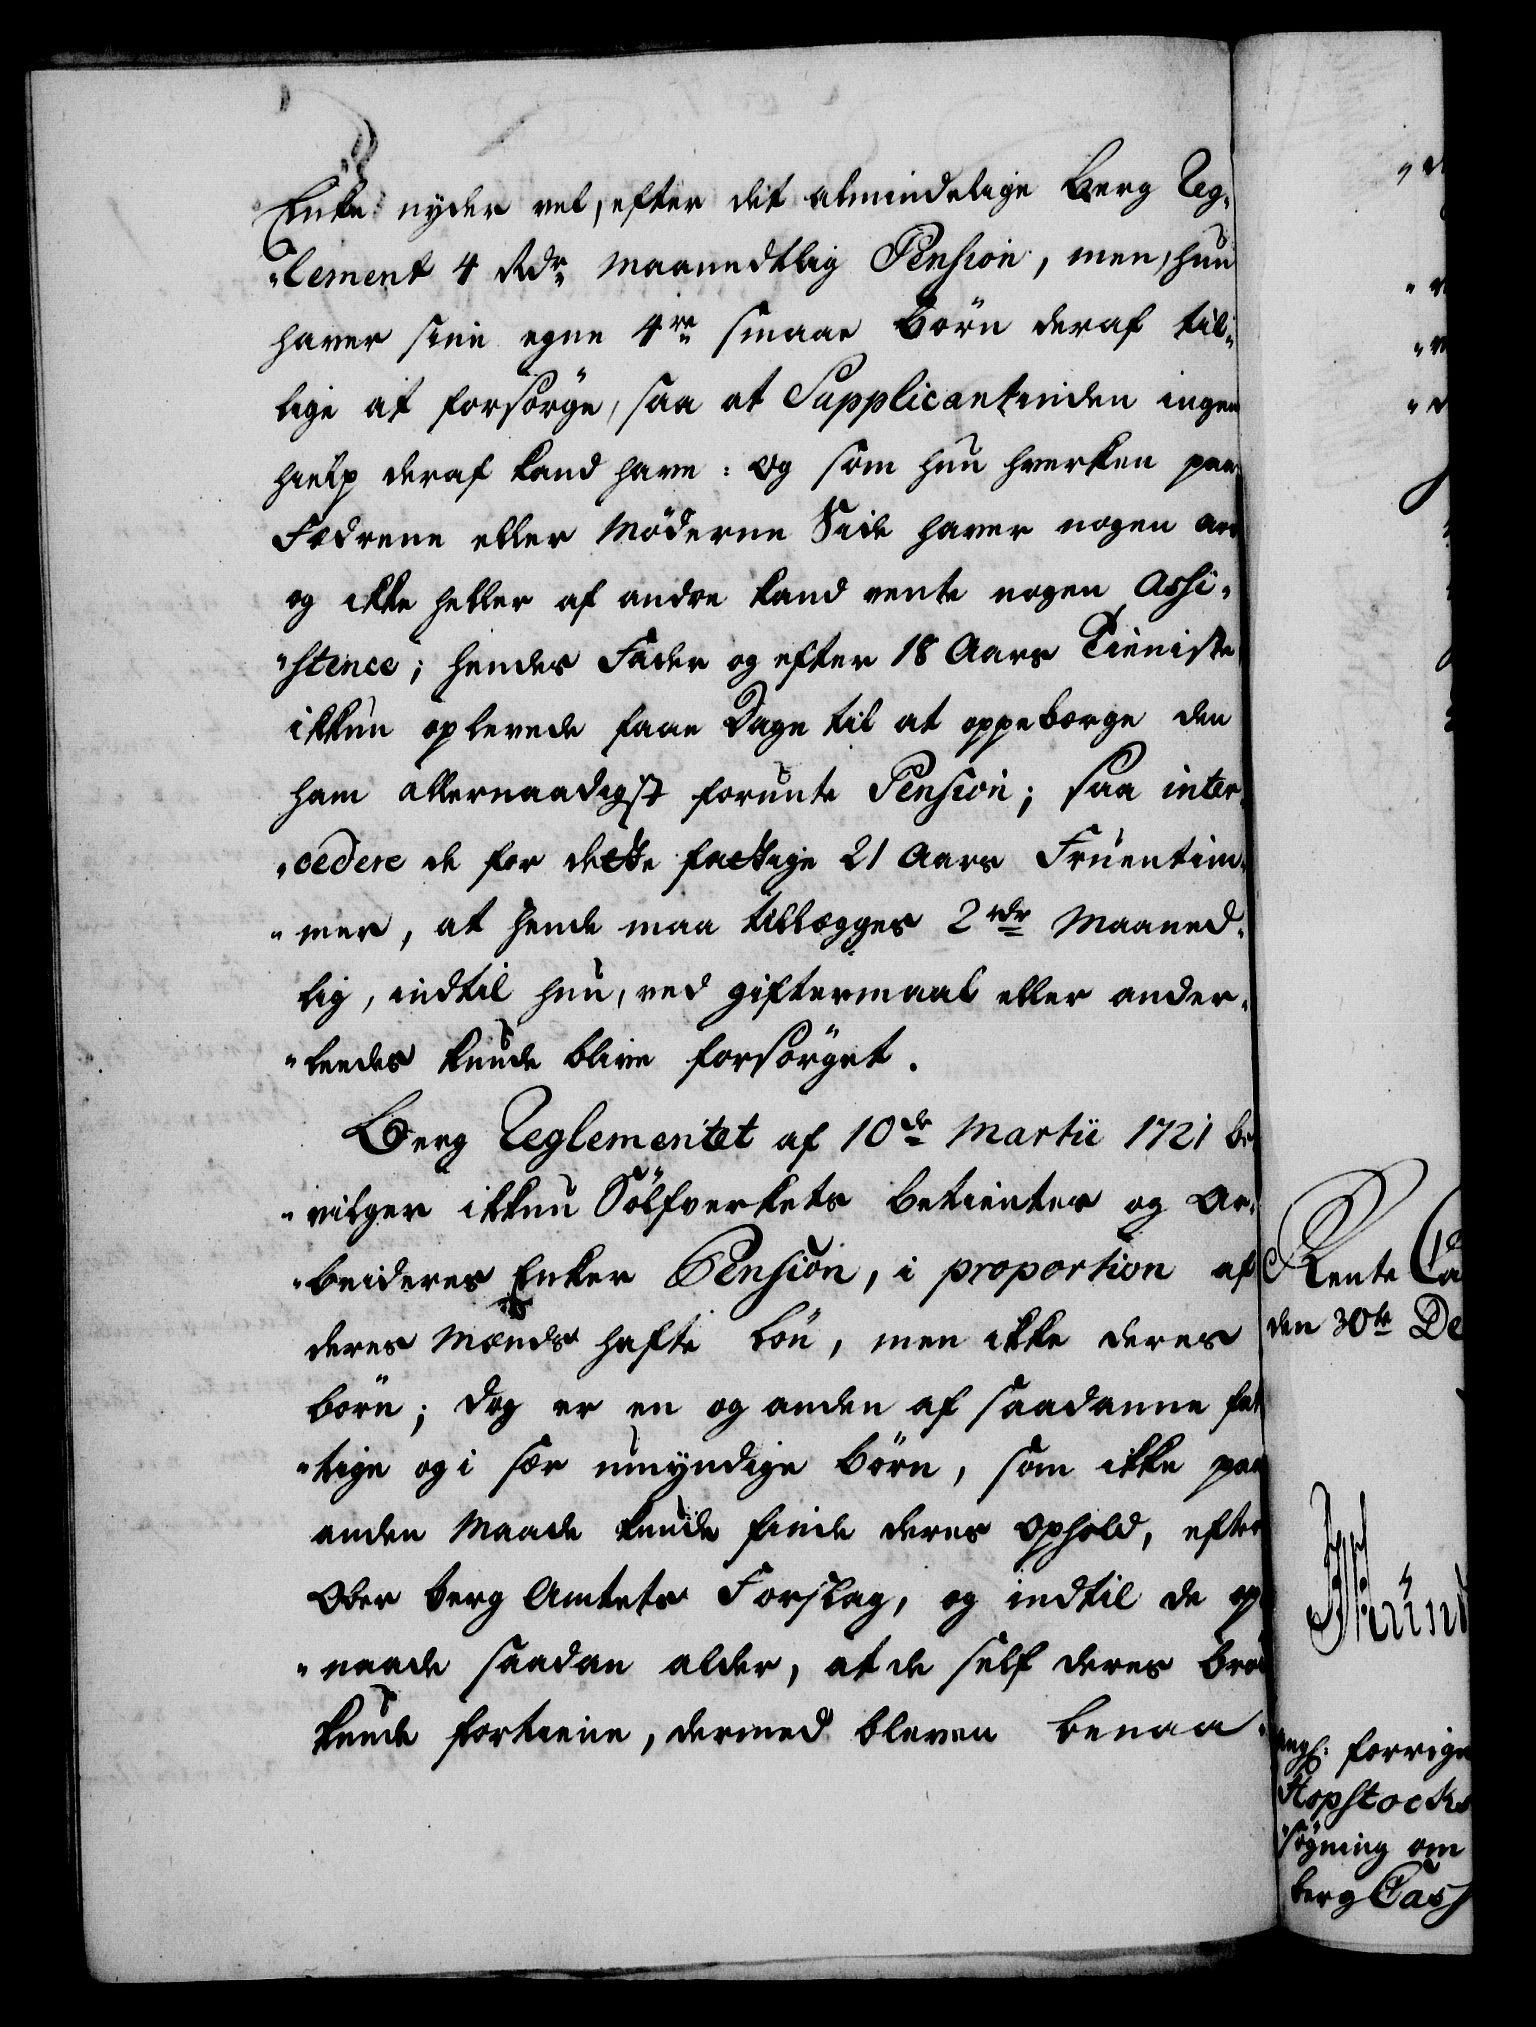 Enke nyder vel, efter det almindelige Berg Reg-
"lement 4 Rdr maanedtlig Pension, men, hun
haver sine egne 4re smaae Börn deraf til-
lige at forsörge, saa at Supplicantinden ingen
hielp deraf kand have: og som hun hverken paa
Fædrene eller Möderne Side haver nogen arv
og ikke heller af andre kand vente nogen Assi-
"stence; hendes Fader og efter 18 Aars Tieniste
ikkun oplevede faae Dage til at oppebærge den
ham allernaadigst forunte Pension; saa inter-
"cedere de for dette fattige 21 Aars Fruentim-
"mer, at hende maa tillægges 2 rdr Maaned-
lig, indtil hun, ved giftermaal eller ander-
"ledes kunde blive forsörget.
Berg Reglementet af 10de Martii 1721 be-
"vilger ikkun Sölfverkets betientes og Ar-
"beideres Enker Pension, i proportion af
deres Mænds hafte lön, men ikke deres
börn; dog er en og anden af saadanne fat-
"tige og i sær umyndige börn, som ikke paa
anden Maade kunde finde deres ophold, efter
Ober Berg Amtets Forslag, og indtil de op-
"naade saadan alder, at de self deres bröd
kunde fortiene, dermed bleven benaa-
Rente Ca
den 30te De
forrige
Klopstocks
sögning om
berg Cass